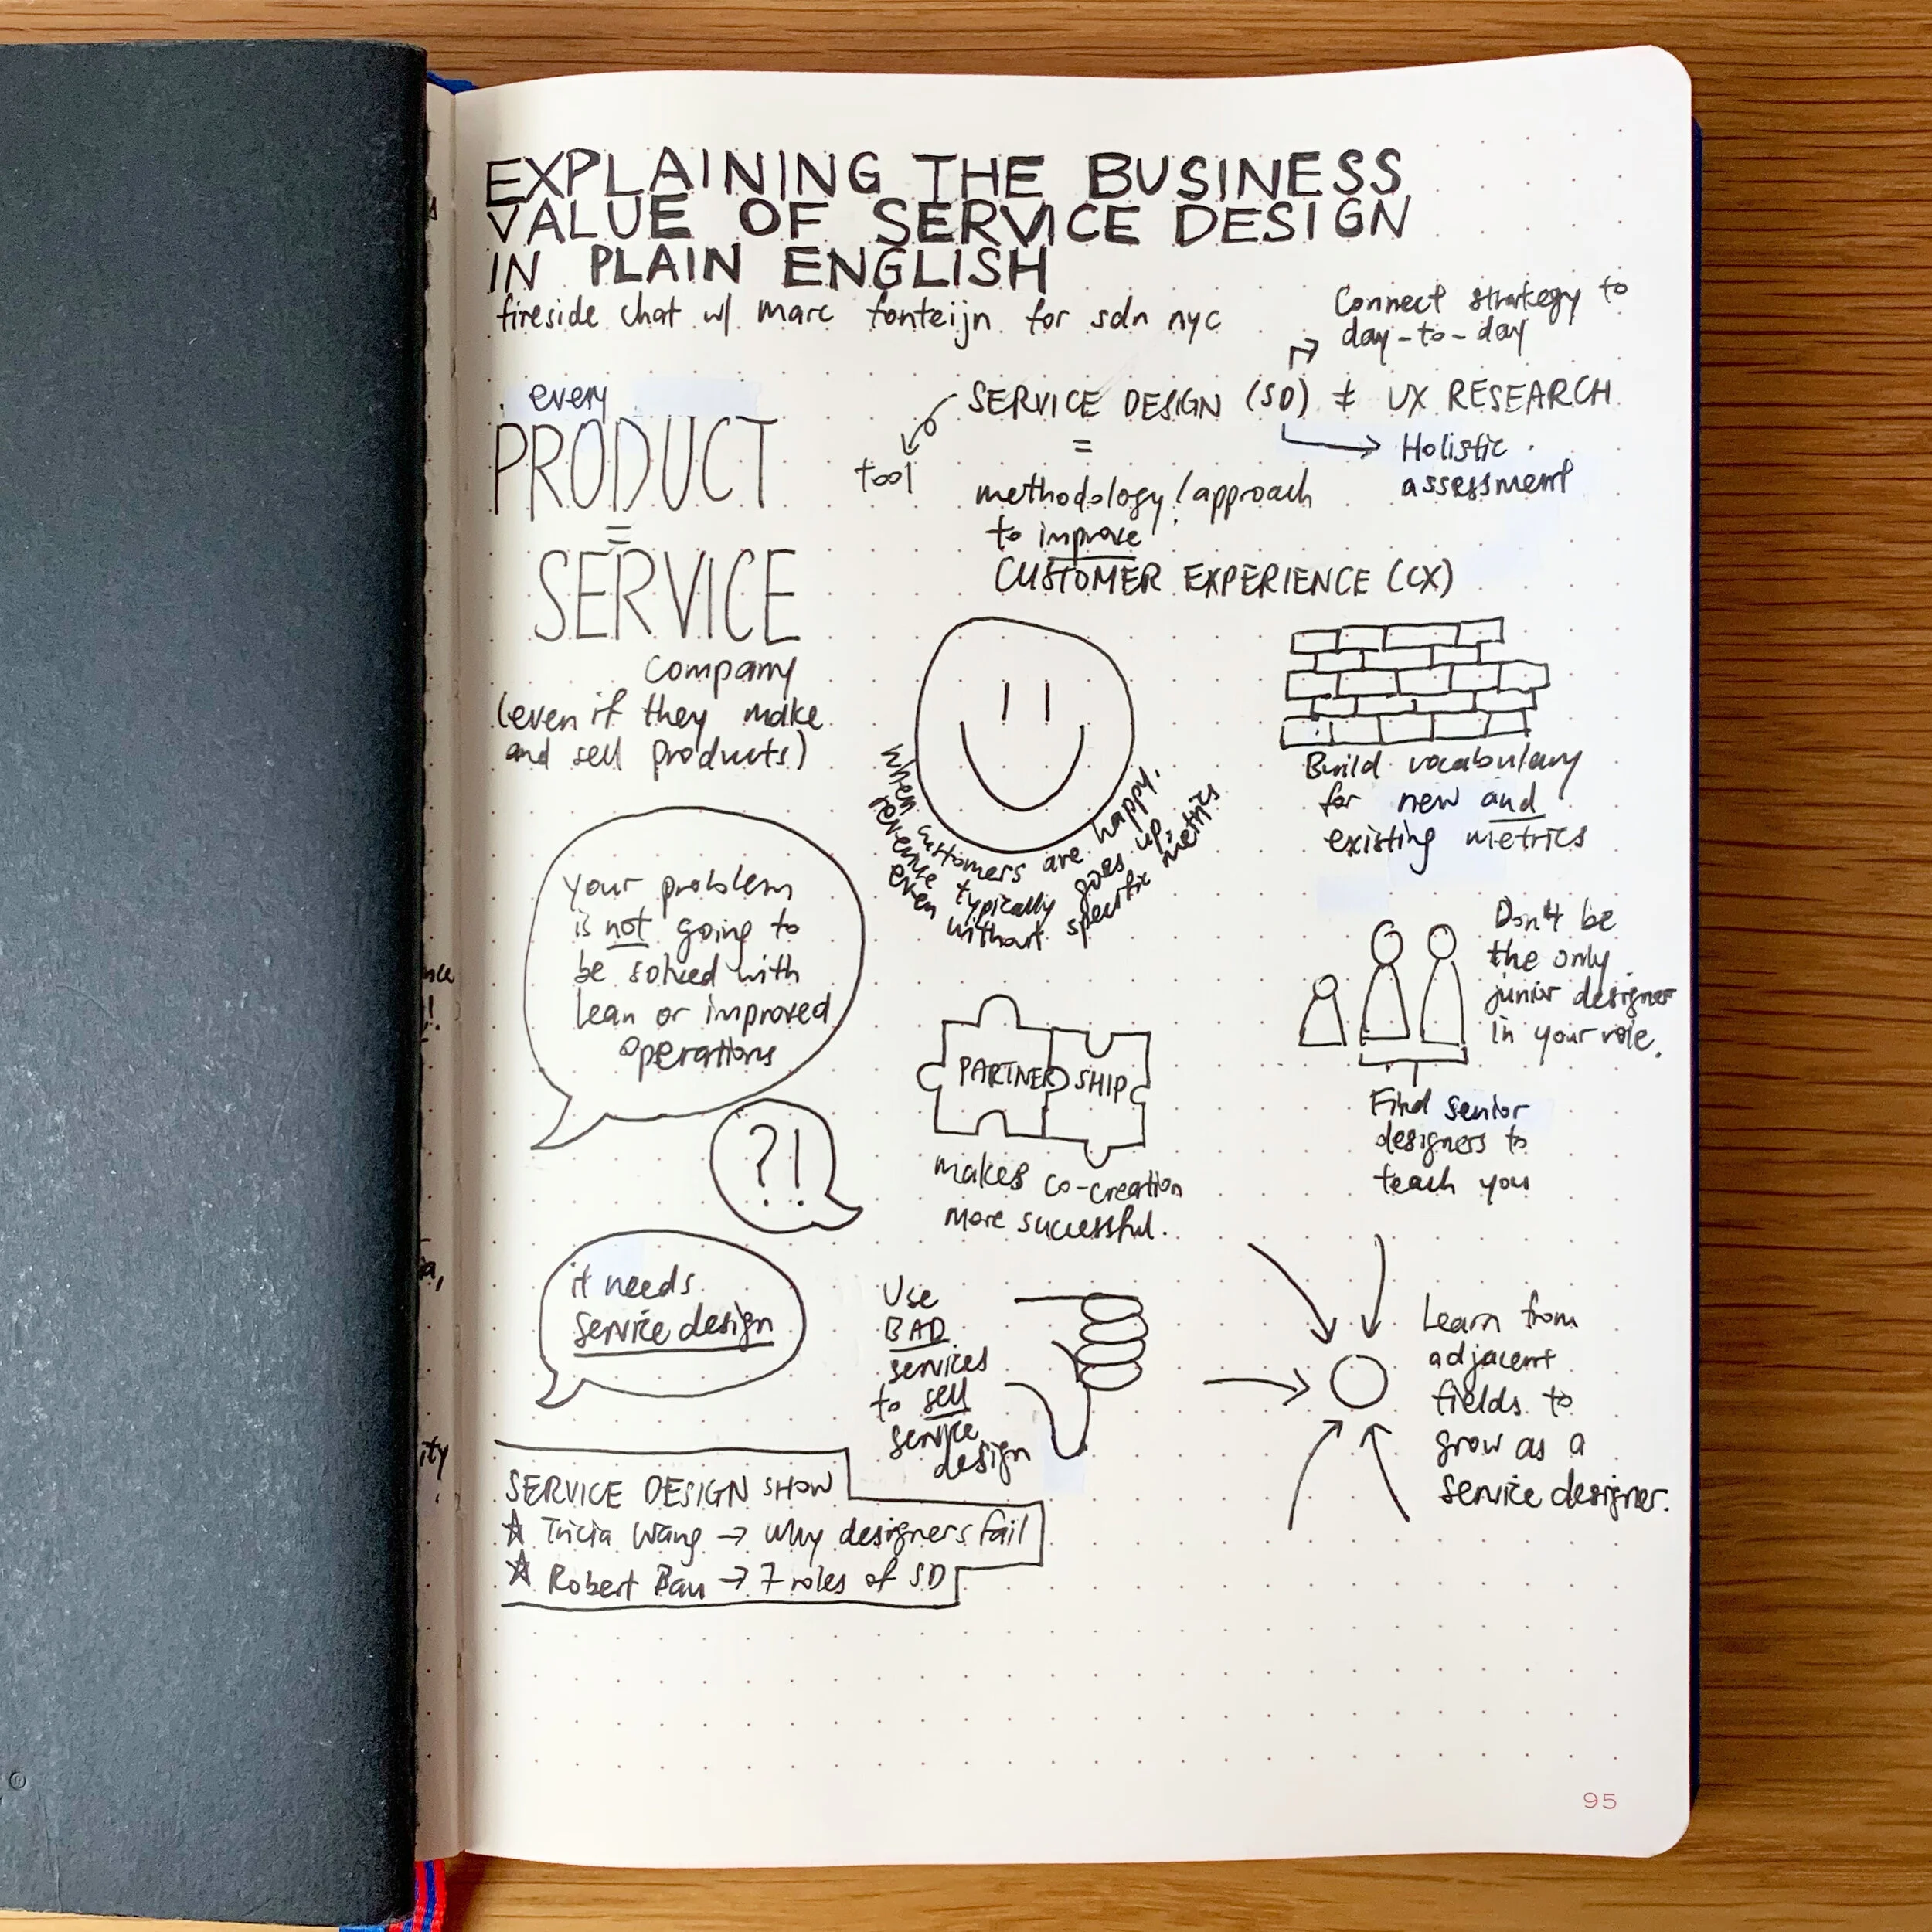 EXPLAINING THE BUSINESS
VALUE OF SERVICE DESIGN
IN PLAIN ENGLISH
fireside chat w/ marc fonteijn for sdn nyc
every
PRODUCT
=
SERVICE
company
(even if they make
and sell products)
Connect strategy to
day-to-day
SERVICE DESIGN (SD) ≠ UX RESEARCH
tool
=
Holistic
assessment
methodology/approach
to improve
CUSTOMER EXPERIENCE (CX)
when customers are happy,
revenue typically goes up,
even without specific metrics
Build vocabulary
for new and
existing metrics
your problem
is not going to
be solved with
lean or improved
operations
?!
it needs
service design
PARTNERSHIP
makes co-creation
more successful.
Don't be
the only
junior designer
in your role.
Find senior
designers to
teach you
Use
BAD
services
to sell
service
design
Learn from
adjacent
fields to
grow as a
service designer.
SERVICE DESIGN SHOW
☆ Tricia Wang → Why designers fail
☆ Robert Bau → 7 roles of SD
95